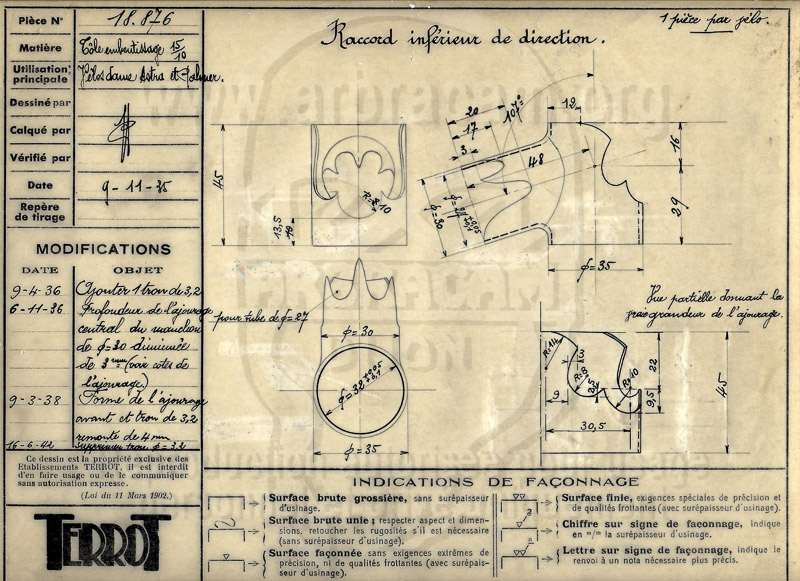 Pièce N° 18.876
Matière Tôle emboutissage 15/10
Utilisation principale Vélos dame Astra et
Dessiné par
Calqué par
Vérifié par
Date 9-11-35
Repère de tirage
MODIFICATIONS
DATE OBJET
9-4-36 Ajouter 1 trou de 3,2
6-11-36 Profondeur de l'ajourage
central du manchon
de ϕ=30 diminuée
de 3 mm (voir cotes de
l'ajourage)
9-3-38 Forme de l'ajourage
avant et trou de 3,2
remonté de 4 mm
16-6-42 Supprimer trou ϕ=3,2
Ce dessin est la propriété exclusive des
Etablissements TERROT, il est interdit
d'en faire usage ou de le communiquer
sans autorisation expresse.
(Loi du 11 Mars 1902.)
TERROT
1 pièce par vélo.
Raccord inférieur de direction.
45
13,5
R=10
20
17
3
107°
12
48
16
29
ϕ=30
ϕ=35
pour tube de ϕ=27
ϕ=30
ϕ=32 +0,05 +0,1
ϕ=35
Vue partielle donnant la
vraie grandeur de l'ajourage.
R=14
3
R=8
R=10
9
30,5
22
9,5
45
INDICATIONS DE FAÇONNAGE
Surface brute grossière, sans surépaisseur
d'usinage.
Surface brute unie ; respecter aspect et dimen-
sions, retoucher les rugosités s'il est nécessaire
(sans surépaisseur d'usinage).
Surface façonnée sans exigences extrêmes de
précision, ni de qualités frottantes (avec surépais-
seur d'usinage).
Surface finie, exigences spéciales de précision et
de qualités frottantes (avec surépaisseur d'usinage).
Chiffre sur signe de façonnage, indique
en m/m la surépaisseur d'usinage.
Lettre sur signe de façonnage, indique le
renvoi à un nota nécessaire plus précis.